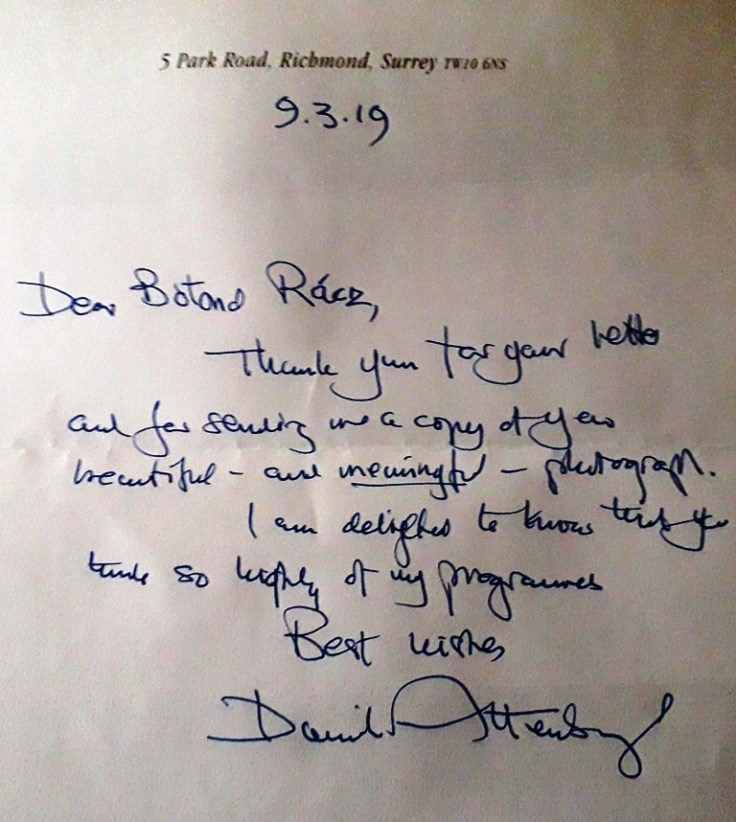 5 Park Road, Richmond, Surrey TW10 6NS
9.3.19
Dear Botond Rácz,
Thank you for your letter
and for sending me a copy of your
beautiful – and meaningful – photograph.
I am delighted to know that you
think so highly of my programmes
Best wishes
David Attenborough